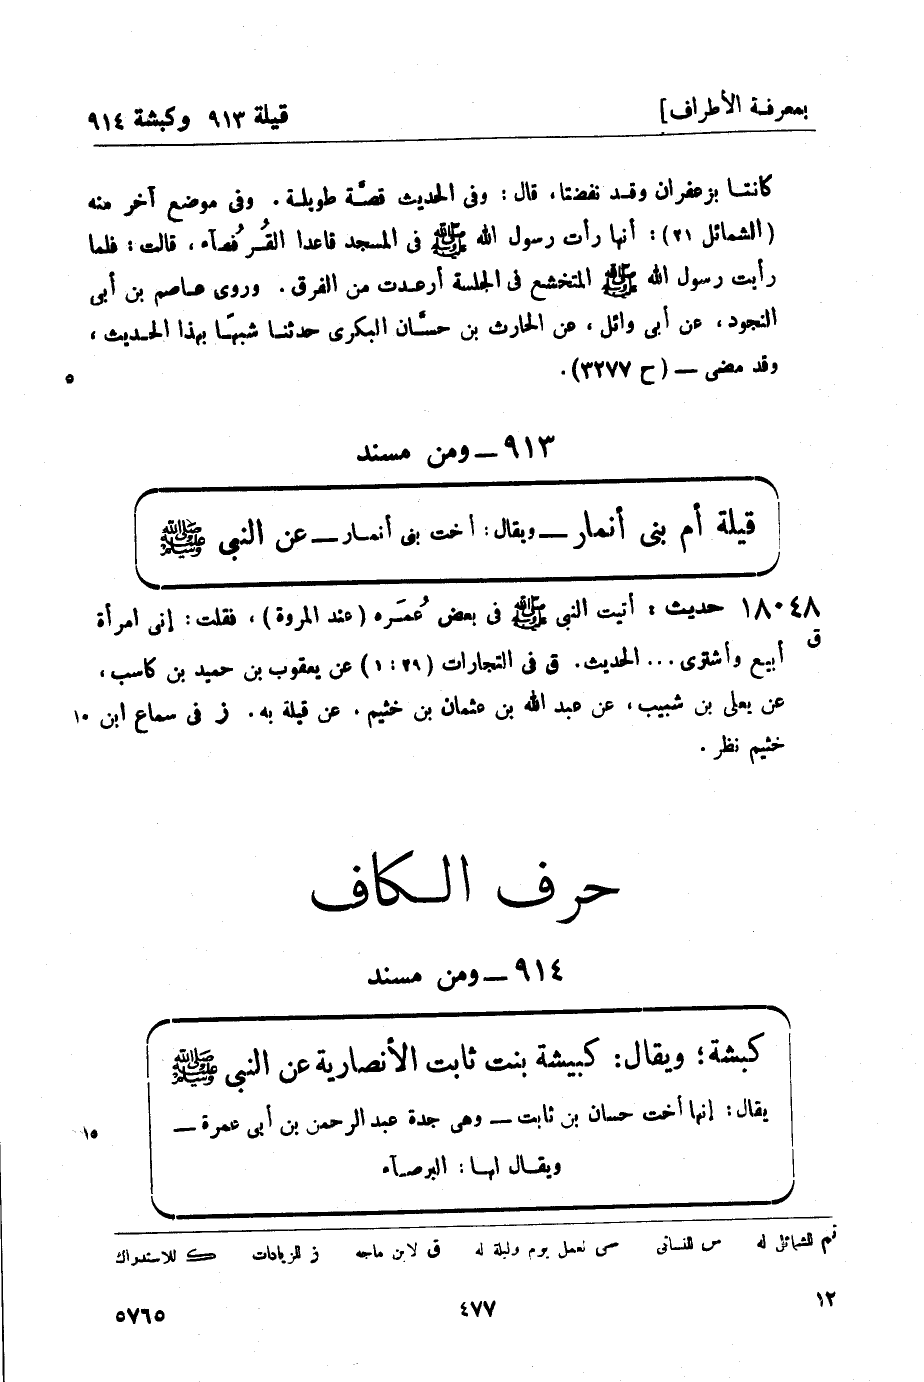 بمعرفة الأطراف] قيلة ٩١٣ وكبشة ٩١٤
كانتا بزعفران وقد نفضتا، قال: وفى الحديث قصَّة طويلة. وفى موضع آخر منه
(الشمائل ٢١): أنها رأت رسول الله ﷺ فى المسجد قاعدا القُرفُصآء، قالت: فلما
رأيت رسول الله ﷺ المتخشع فى الجلسة أرعدت من الفرق. وروى عاصم بن أبى
النجود، عن أبى وائل، عن الحارث بن حسَّان البكرى حدثنا شبيهًا بهذا الحديث،
وقد مضى — (ح ٣٢٧٧). ٥
٩١٣ — ومن مسند
قيلة أم بنى أنمار — ويقال: أخت بنى أنمار — عن النبى ﷺ
١٨٠٤٨ حديث: أتيت النبى ﷺ فى بعض عُمَره (عند المروة)، فقلت: إنى امرأة
ق أبيع وأشترى... الحديث. ق فى التجارات (٢٩: ١) عن يعقوب بن حميد بن كاسب،
عن يعلى بن شبيب، عن عبد الله بن عثمان بن خثيم. عن قيلة به. ز فى سماع ابن ١٠
خثيم نظر.
حرف الكاف
٩١٤ — ومن مسند
كبشة؛ ويقال: كبيشة بنت ثابت الأنصارية عن النبى ﷺ
يقال: إنها أخت حسان بن ثابت — وهى جدة عبد الرحمن بن أبى عمرة — ١٥
ويقال لها: البرصآء
تم للشمائل له س للنسائى سى لعمل يوم وليلة له ق لابن ماجه ز للزيادات ك للاستدراك
١٢ ٤٧٧ ٥٧٦٥